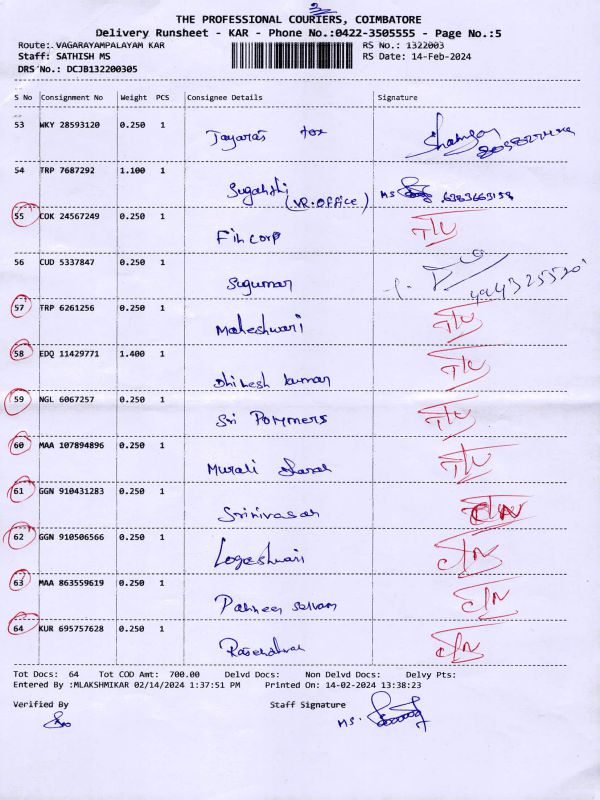 2
THE PROFESSIONAL COURIERS, COIMBATORE
Delivery Runsheet - KAR - Phone No.:0422-3505555 - Page No.:5
Route: VAGARAYAMPALAYAM KAR RS No.: 1322003
Staff: SATHISH MS RS Date: 14-Feb-2024
DRS No.: DCJB132200305
S No Consignment No Weight PCS Consignee Details Signature
53 WKY 28593120 0.250 1
54 TRP 7687292 1.100 1
(VR.OFFICE) MS 6383663158
55 COK 24567249 0.250 1 T/U
Fin corp
56 CUD 5337847 0.250 1
Sugumar
57 TRP 6261256 0.250 1 T/U
Maheshwari
58 EDQ 11429771 1.400 1 T/U
Dhinesh kumar
59 NGL 6067257 0.250 1 T/U
Sri Polymers
60 MAA 107894896 0.250 1 T/U
Murali
61 GGN 910431283 0.250 1
Srinivasan
62 GGN 910506566 0.250 1 C/N
Logeshwari
63 MAA 863559619 0.250 1 C/N
Panneer selvam
64 KUR 695757628 0.250 1 C/N
Tot Docs: 64 Tot COD Amt: 700.00 Delvd Docs: Non Delvd Docs: Delvy Pts:
Entered By :MLAKSHMIKAR 02/14/2024 1:37:51 PM Printed On: 14-02-2024 13:38:23
Verified By Staff Signature
MS.